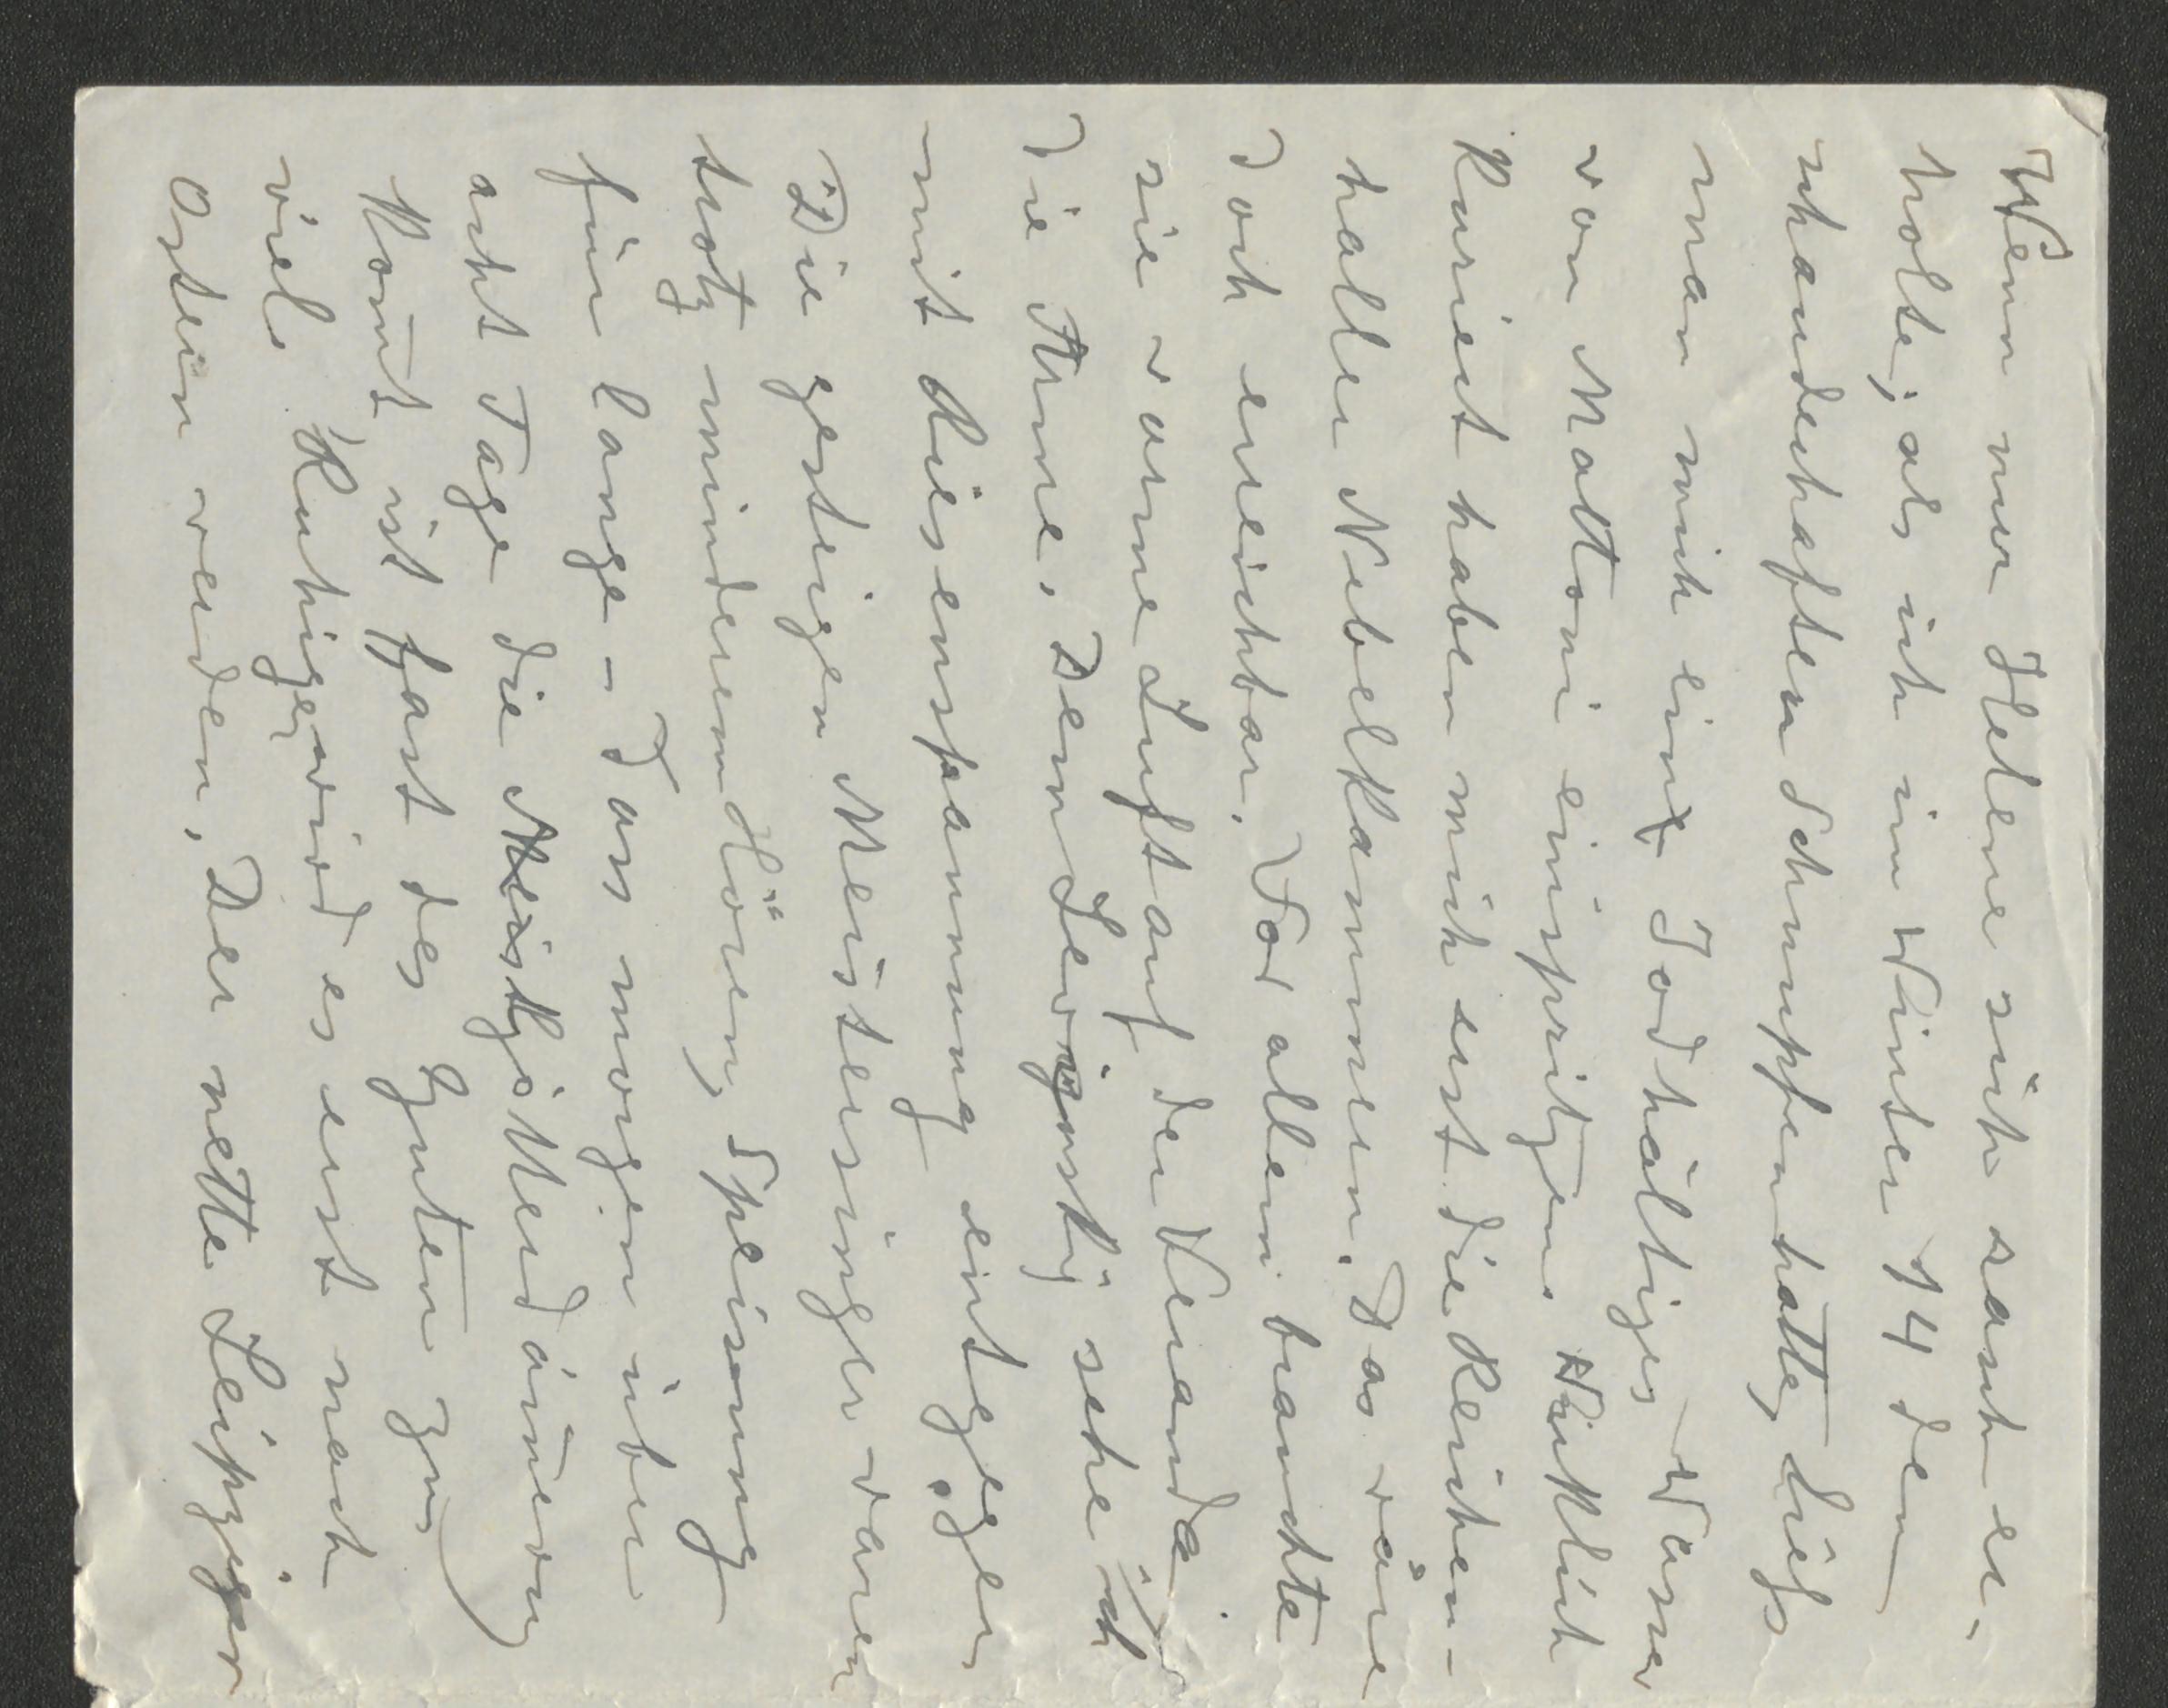 Wenn nur Helene sich rasch er-
holte; als ich im Winter 14 den
schauderhaften Schnupfen hatte, ließ
man mich ein Jodhältiges Wasser
von Mattoni einspritzen. Wirklich
kuriert haben mich erst die Reichen-
haller Nebelkammern. Das wäre
doch erreichbar. Vor allem brauchte
sie warme Luft auf der Veranda
die Arme. Dem sehe ich
mit Riesenspannung entgegen
Die gestrigen Meistersinger waren
trotz minderem Hörens, Speisung
für lange – Das morgen über
acht Tage die
kommt ist fast des Guten zu
viel. Ruhiger wird es erst nach
Ostern werden. Der nette Leipziger